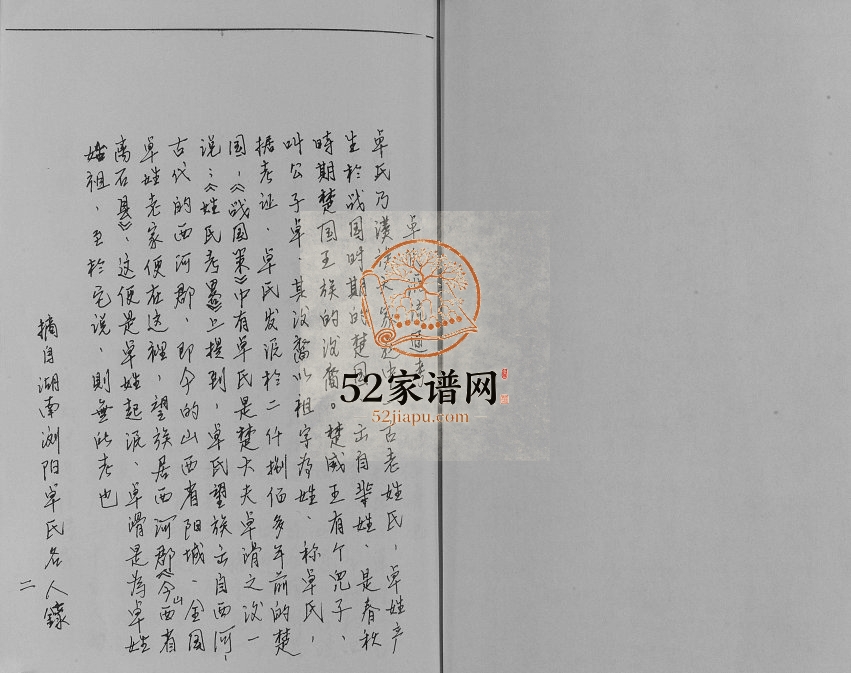 卓氏源流通考
卓氏乃漢族 古老姓氏，卓姓产
生於战国时期的楚国 出自芈姓、是春秋
時期楚国王族的後裔。楚威王有个兒子、
叫公子卓、其後裔以祖字為姓、称卓氏，
据考证、卓氏发源於二仟捌佰多年前的楚
国，《战国策》中有卓氏是楚大夫卓滑之後一
说；《姓氏考畧》上提到，卓氏望族出自西河，
古代的西河郡、即今的山西省阳城、全国
卓姓老家便在这裡，望族居西河郡《今山西省
离石县》、这便是卓姓起源、卓滑是為卓姓
始祖、至於它说、則無此考也
摘自湖南浏阳卓氏名人錄
二
52家谱网
52jiapu.com